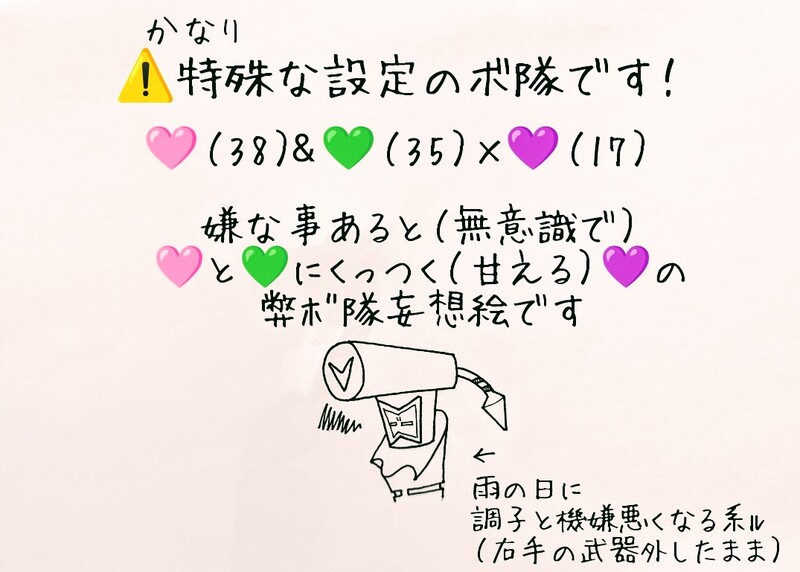 かなり
⚠️特殊な設定のボ隊です!
🩷(38)&💚(35)×💜(17)
嫌な事あると(無意識で)
🩷と💚にくっつく(甘える)💜の
弊ボ隊妄想絵です
←
雨の日に
調子と機嫌悪くなる系ル
(右手の武器外したまま)